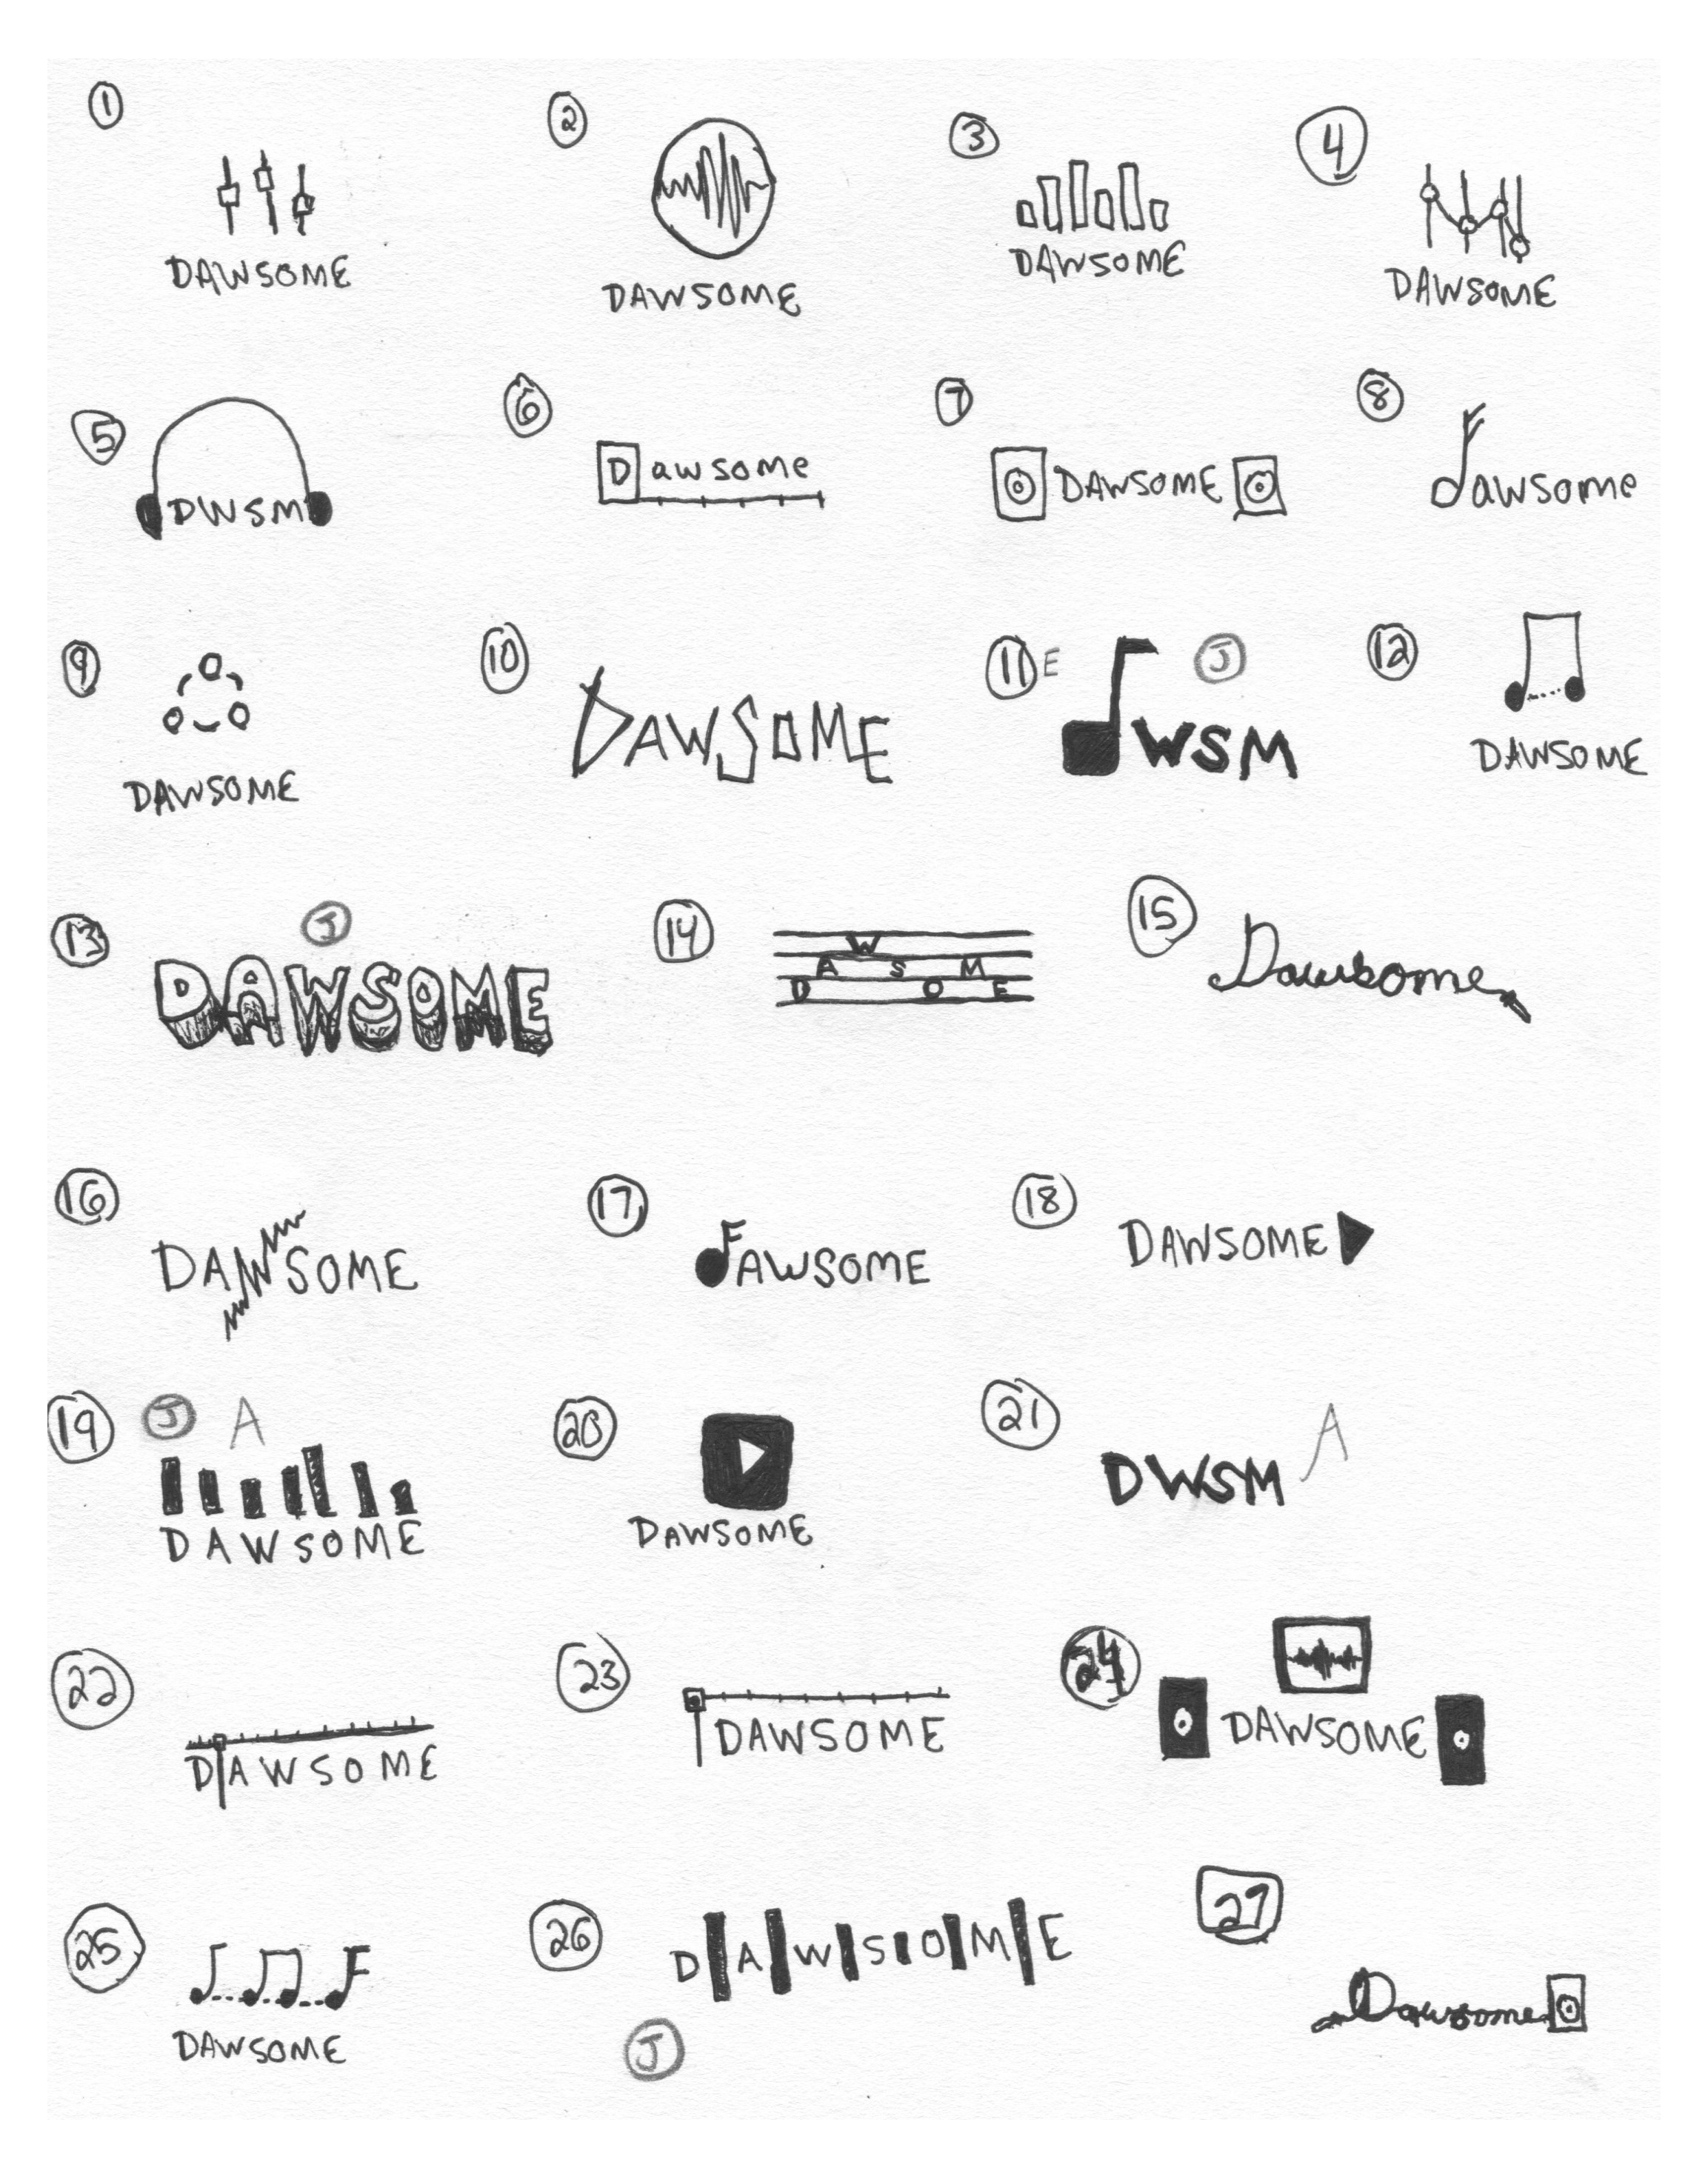 1
DAWSOME
2
DAWSOME
3
DAWSOME
4
DAWSOME
5
DWSM
6
Dawsome
7
DAWSOME
8
dawsome
9
DAWSOME
10
DAWSOME
11 E J
dWSM
12
DAWSOME
13 J
DAWSOME
14
DAWSOME
15
Dawsome
16
DAWSOME
17
dAWSOME
18
DAWSOME
19 J A
DAWSOME
20
DAWSOME
21 A
DWSM
22
DAWSOME
23
DAWSOME
24
DAWSOME
25
DAWSOME
26
DAWSOME
J
27
Dawsome